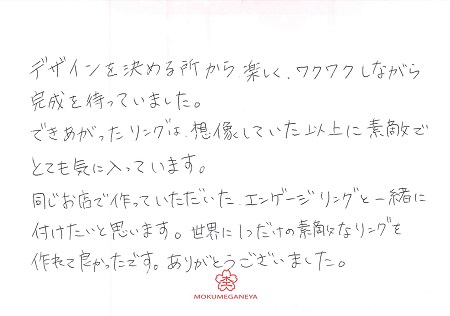 デザインを決める所から楽しく、ワクワクしながら
完成を待っていました。
できあがったリングは、想像していた以上に素敵で
とても気に入っています。
同じお店で作っていただいた、エンゲージリングと一緒に
付けたいと思います。世界に1つだけの素敵なリングを
作れて良かったです。ありがとうございました。
MOKUMEGANEYA